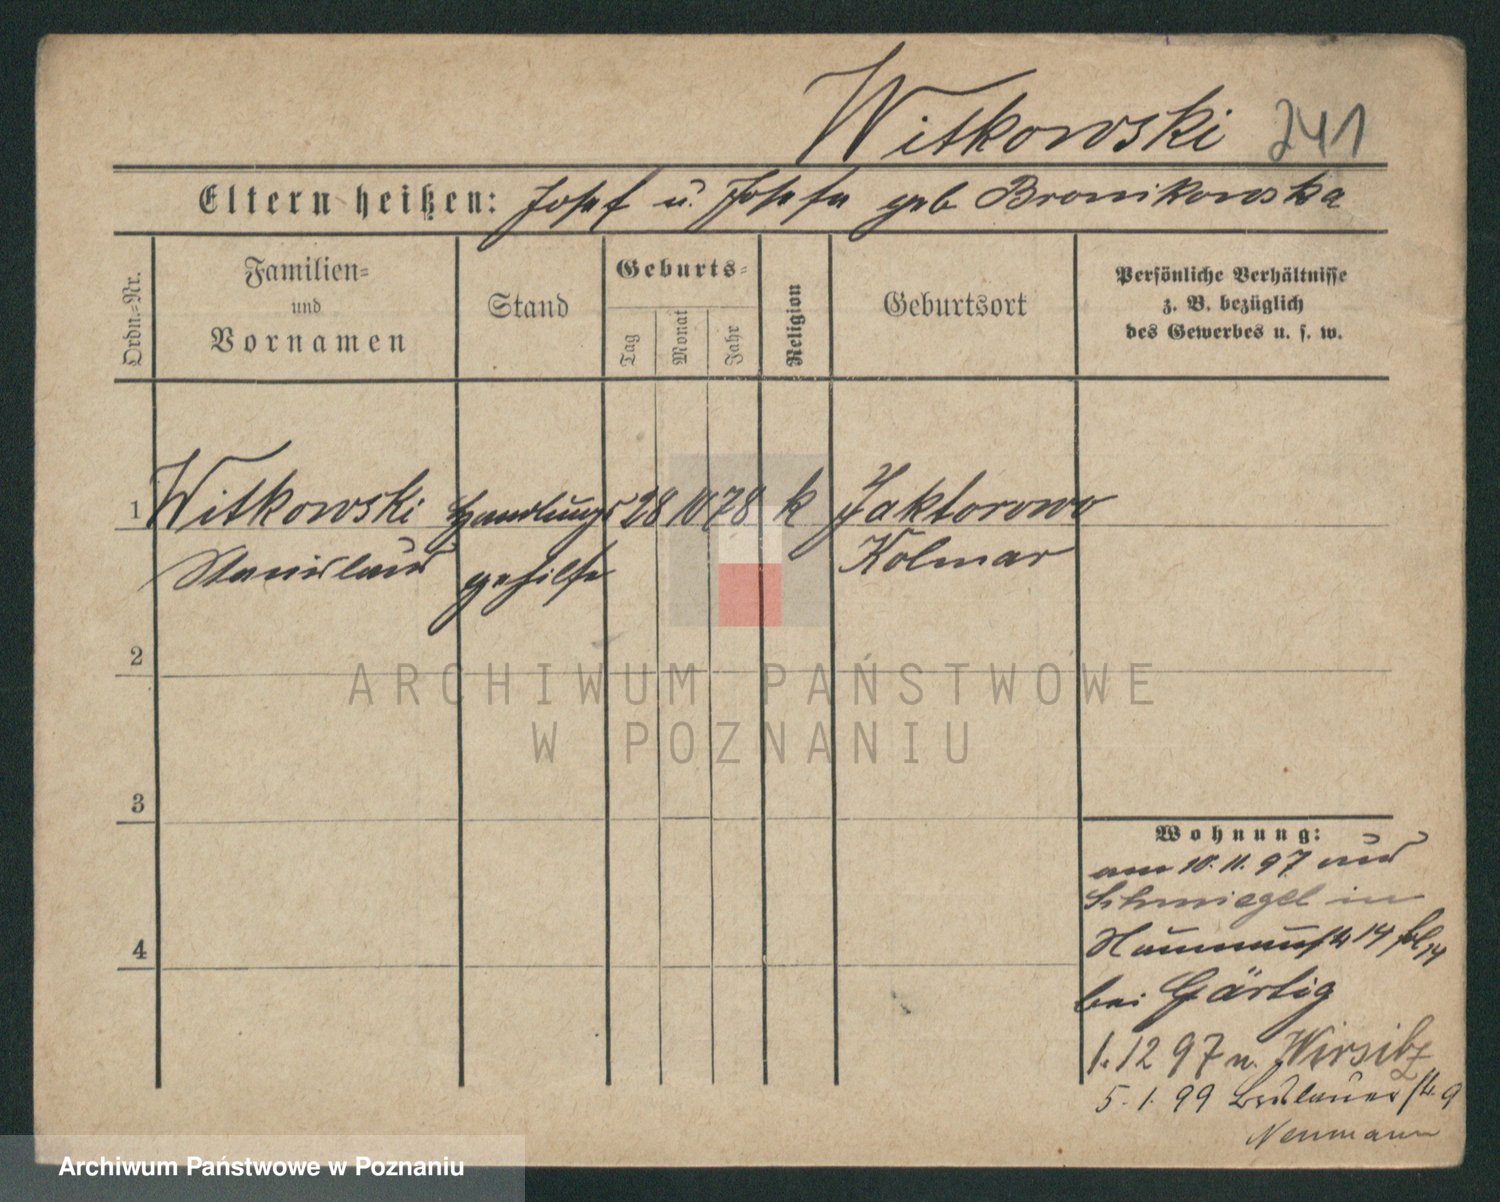 Witkowski 241
Eltern heißen: Josef u. Josefa geb Bronikowska
Ordn.-Nr.
Familien- und Vornamen
Stand
Geburts-
Tag
Monat
Jahr
Religion
Geburtsort
Persönliche Verhältnisse
z. B. bezüglich
des Gewerbes u. s. w.
1 Witkowski Handlungs 28 10 78 k Jaktorowo
Stanislaus gehilfe Kolmar
2
3
4
Wohnung:
am 10.11.97 aus
Schmiegel in
14
bei Gärtig
1.12 97 n. Wirsitz
5.1.99 Breslauerstr. 9
Neumann
ARCHIWUM PAŃSTWOWE
W POZNANIU
Archiwum Państwowe w Poznaniu